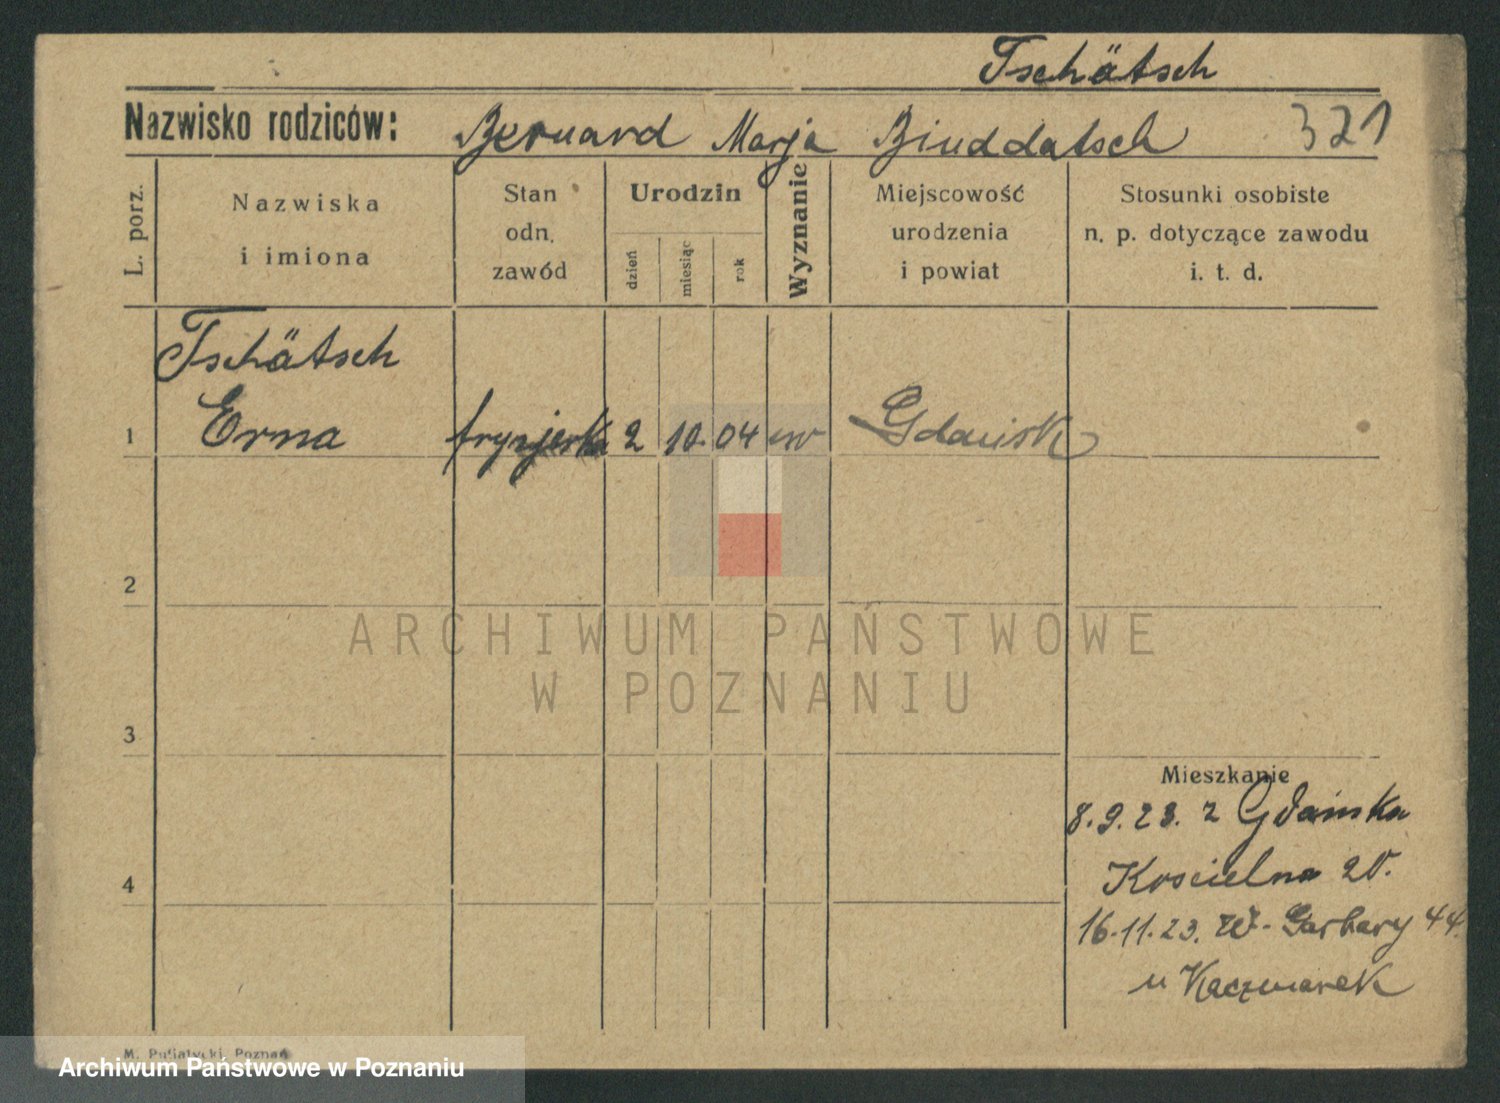 Tschätsch
Nazwisko rodziców: Bernard Marja Binddatsch 321
L. porz.
Nazwiska i imiona
Stan odn. zawód
Urodzin
dzień miesiąc rok
Wyznanie
Miejscowość urodzenia i powiat
Stosunki osobiste n. p. dotyczące zawodu i. t. d.
Tschätsch
1 Erna fryzjerka 2 10. 04 ew Gdańsk
2
ARCHIWUM PAŃSTWOWE
W POZNANIU
3
Mieszkanie
8.9.23. z Gdańska
4 Koscielna 20.
16.11.23. W. Garbary 44.
u Kaczmarek
M. Putiatycki, Poznań
Archiwum Państwowe w Poznaniu